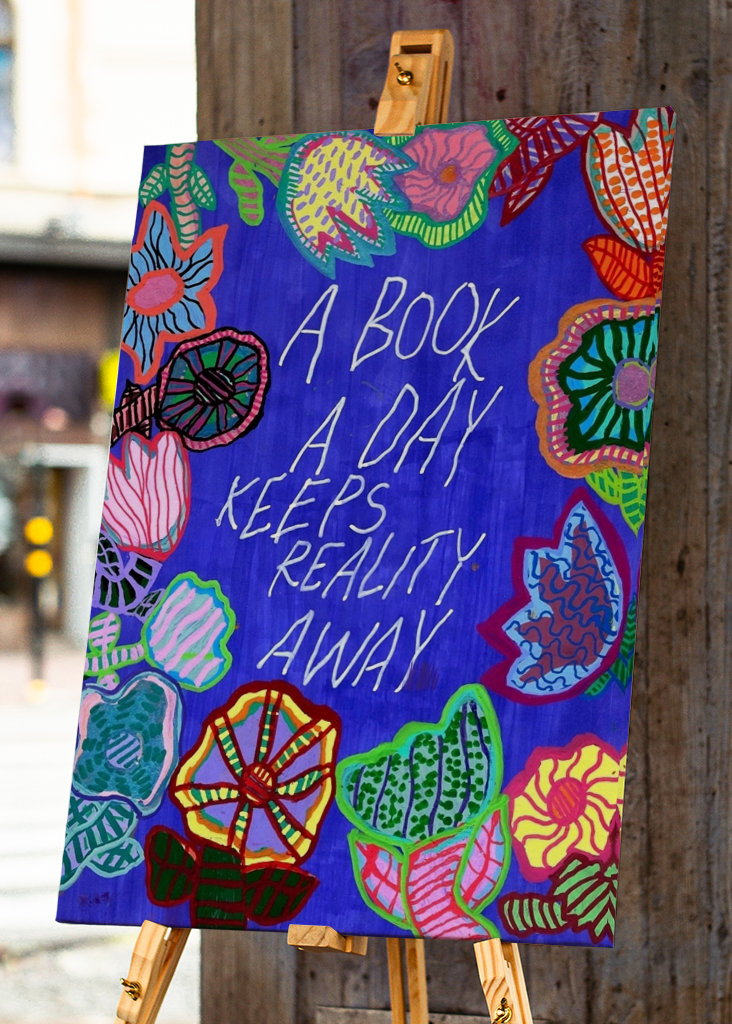 A BOOK
A DAY
KEEPS
REALITY
AWAY